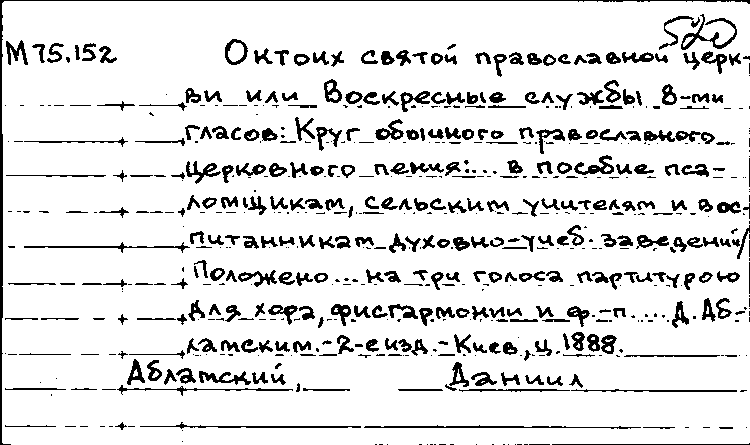 520
М 75.152 Октоих святой православной церк-
ви или Воскресные службы 8-ми
гласов: Круг обычного православного
церковного пения:... в пособие пса-
ломщикам, сельским учителям и вос-
питанникам духовно-учеб. заведений/
Положено... на три голоса партитурою
для хора, фисгармонии и ф.-п. ... Д. Аб-
ламским.-2-е изд.-Киев, ц. 1888.
Абламский, Даниил